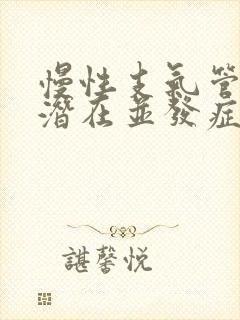 慢性支氣管
潛在並發症
諶馨悦